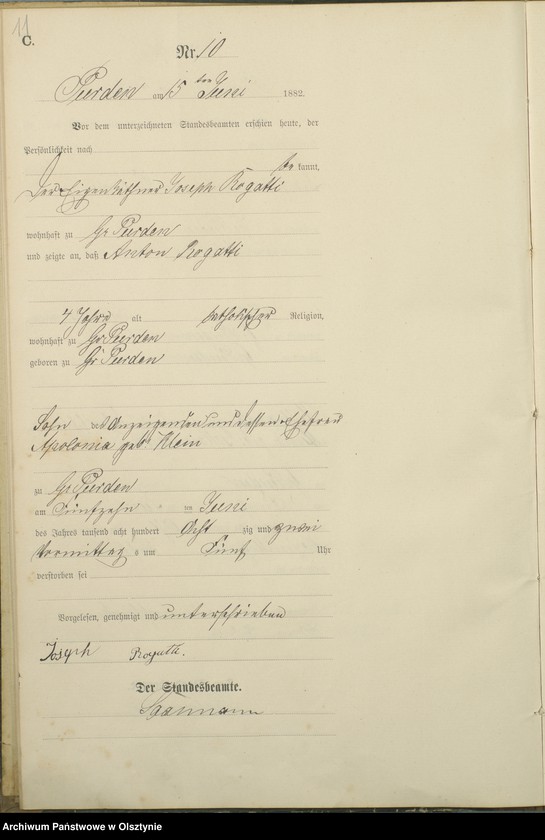 11
C.
Nr. 10
Purden am 15 ten Juni 1882.
Vor dem unterzeichneten Standesbeamten erschien heute, der
Persönlichkeit nach
be kannt,
Der Eigenkäthner Joseph Rogatti
wohnhaft zu Gr Purden
und zeigte an, daß Anton Rogatti
4 Jahre alt katholischer Religion,
wohnhaft zu Gr Purden
geboren zu Gr Purden
Sohn des Anzeigenden und dessen Ehefrau
Apolonia geb. Klein
zu Gr Purden
am Fünfzehn ten Juni
des Jahres tausend acht hundert Acht zig und zwei
Vormittag s um Fünf Uhr
verstorben sei
Vorgelesen, genehmigt und unterschrieben
Joseph Rogatti.
Der Standesbeamte.
Archiwum Państwowe w Olsztynie